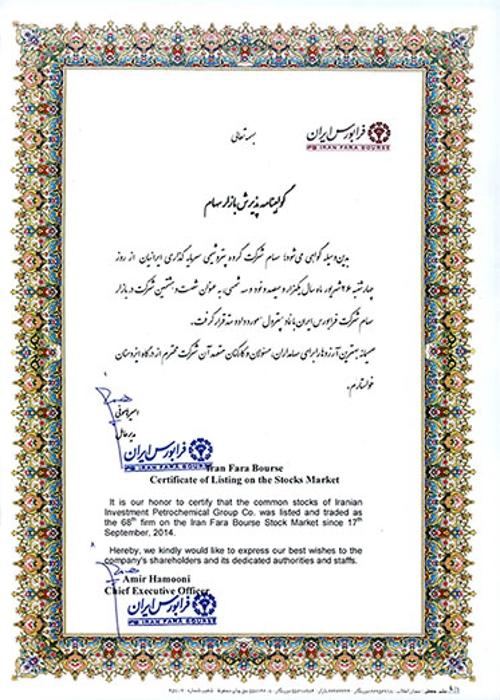 فرابورس ایران
IRAN FARA BOURSE
بسمه تعالی
گواهینامه پذیرش بازار سهام
بدین وسیله گواهی می‌شود؛ سهام شرکت گروه پتروشیمی سرمایه گذاری ایرانیان از روز
چهارشنبه ۲۶ شهریور ماه سال یکهزار و سیصد و نود و سه شمسی، به عنوان شصت و هشتمین شرکت در بازار
سهام شرکت فرابورس ایران با نماد پترول مورد داد و ستد قرار گرفت.
صمیمانه بهترین آرزوها را برای سهامداران، مسئولان و کارکنان متعهد آن شرکت محترم از درگاه ایزد منان
خواستارم.
امیر هامونی
مدیر عامل
فرابورس ایران
IRAN FARA BOURSE
Iran Fara Bourse
Certificate of Listing on the Stocks Market
It is our honor to certify that the common stocks of Iranian
Investment Petrochemical Group Co. was listed and traded as
the 68th firm on the Iran Fara Bourse Stock Market since 17th
September, 2014.
Hereby, we kindly would like to express our best wishes to the
company's shareholders and its dedicated authorities and staffs.
Amir Hamooni
Chief Executive Officer
فرابورس ایران
IRAN FARA BOURSE